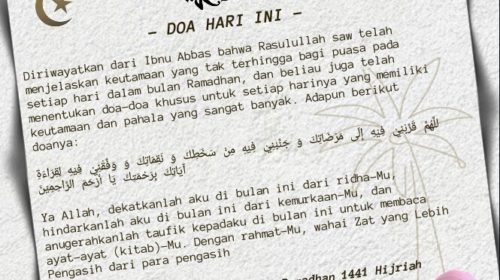 – DOA HARI INI –
Diriwayatkan dari Ibnu Abbas bahwa Rasulullah saw telah
menjelaskan keutamaan yang tak terhingga bagi puasa pada
setiap hari dalam bulan Ramadhan, dan beliau juga telah
menentukan doa-doa khusus untuk setiap harinya yang memiliki
keutamaan dan pahala yang sangat banyak. Adapun berikut
doanya:
اللَّهُمَّ قَرِّبْنِي فِيهِ إِلَى مَرْضَاتِكَ وَ جَنِّبْنِي فِيهِ مِنْ سَخَطِكَ وَ نَقِمَاتِكَ وَ وَفِّقْنِي فِيهِ لِقِرَاءَةِ
آيَاتِكَ بِرَحْمَتِكَ يَا أَرْحَمَ الرَّاحِمِينَ
Ya Allah, dekatkanlah aku di bulan ini dari ridha-Mu,
hindarkanlah aku di bulan ini dari kemurkaan-Mu, dan
anugerahkanlah taufik kepadaku di bulan ini untuk membaca
ayat-ayat (kitab)-Mu. Dengan rahmat-Mu, wahai Zat yang Lebih
Pengasih dari para pengasih
1441 Hijriah